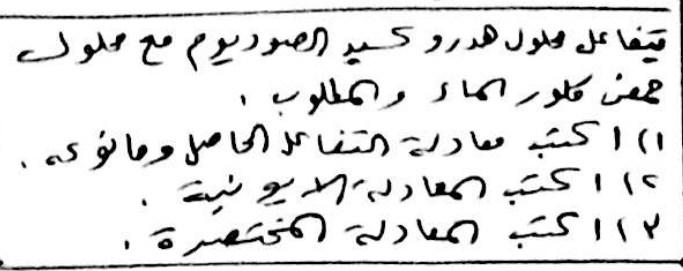 يتفاعل محلول هدروكسيد الصوديوم مع محلول
حمض كلور الماء والمطلوب :
(1) اكتب معادلة التفاعل الحاصل وما نوعه .
(2) اكتب المعادلة الايونية .
(3) اكتب المعادلة المختصرة .